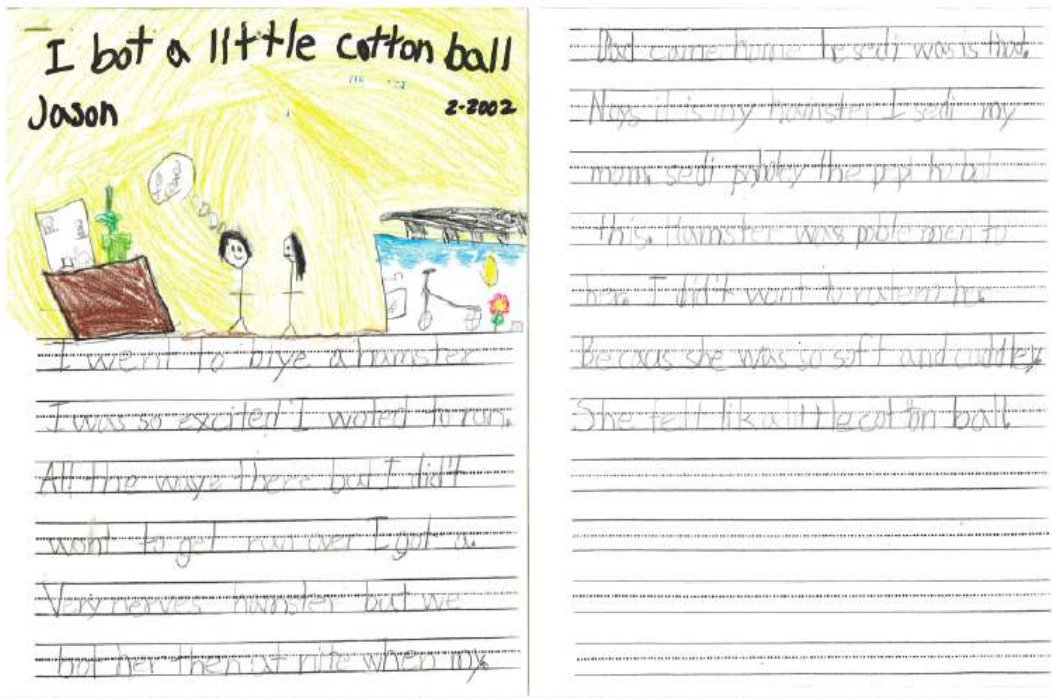 I bot a little cotton ball
Jason
2-2002
I went to biye a hamster
I was so excited I woted to run.
All the waye there but I did't
woht to get run over I got a.
Very nerves hamster but we
bot her then at nite when my
Dad came home he sedi was is that.
Noys it is my hamster I sedi my
mom. sedi the to bot
this. Hamster was to
her. I did't want to her.
Becaus she was so soft and cuddley
She felt like a little cotton ball